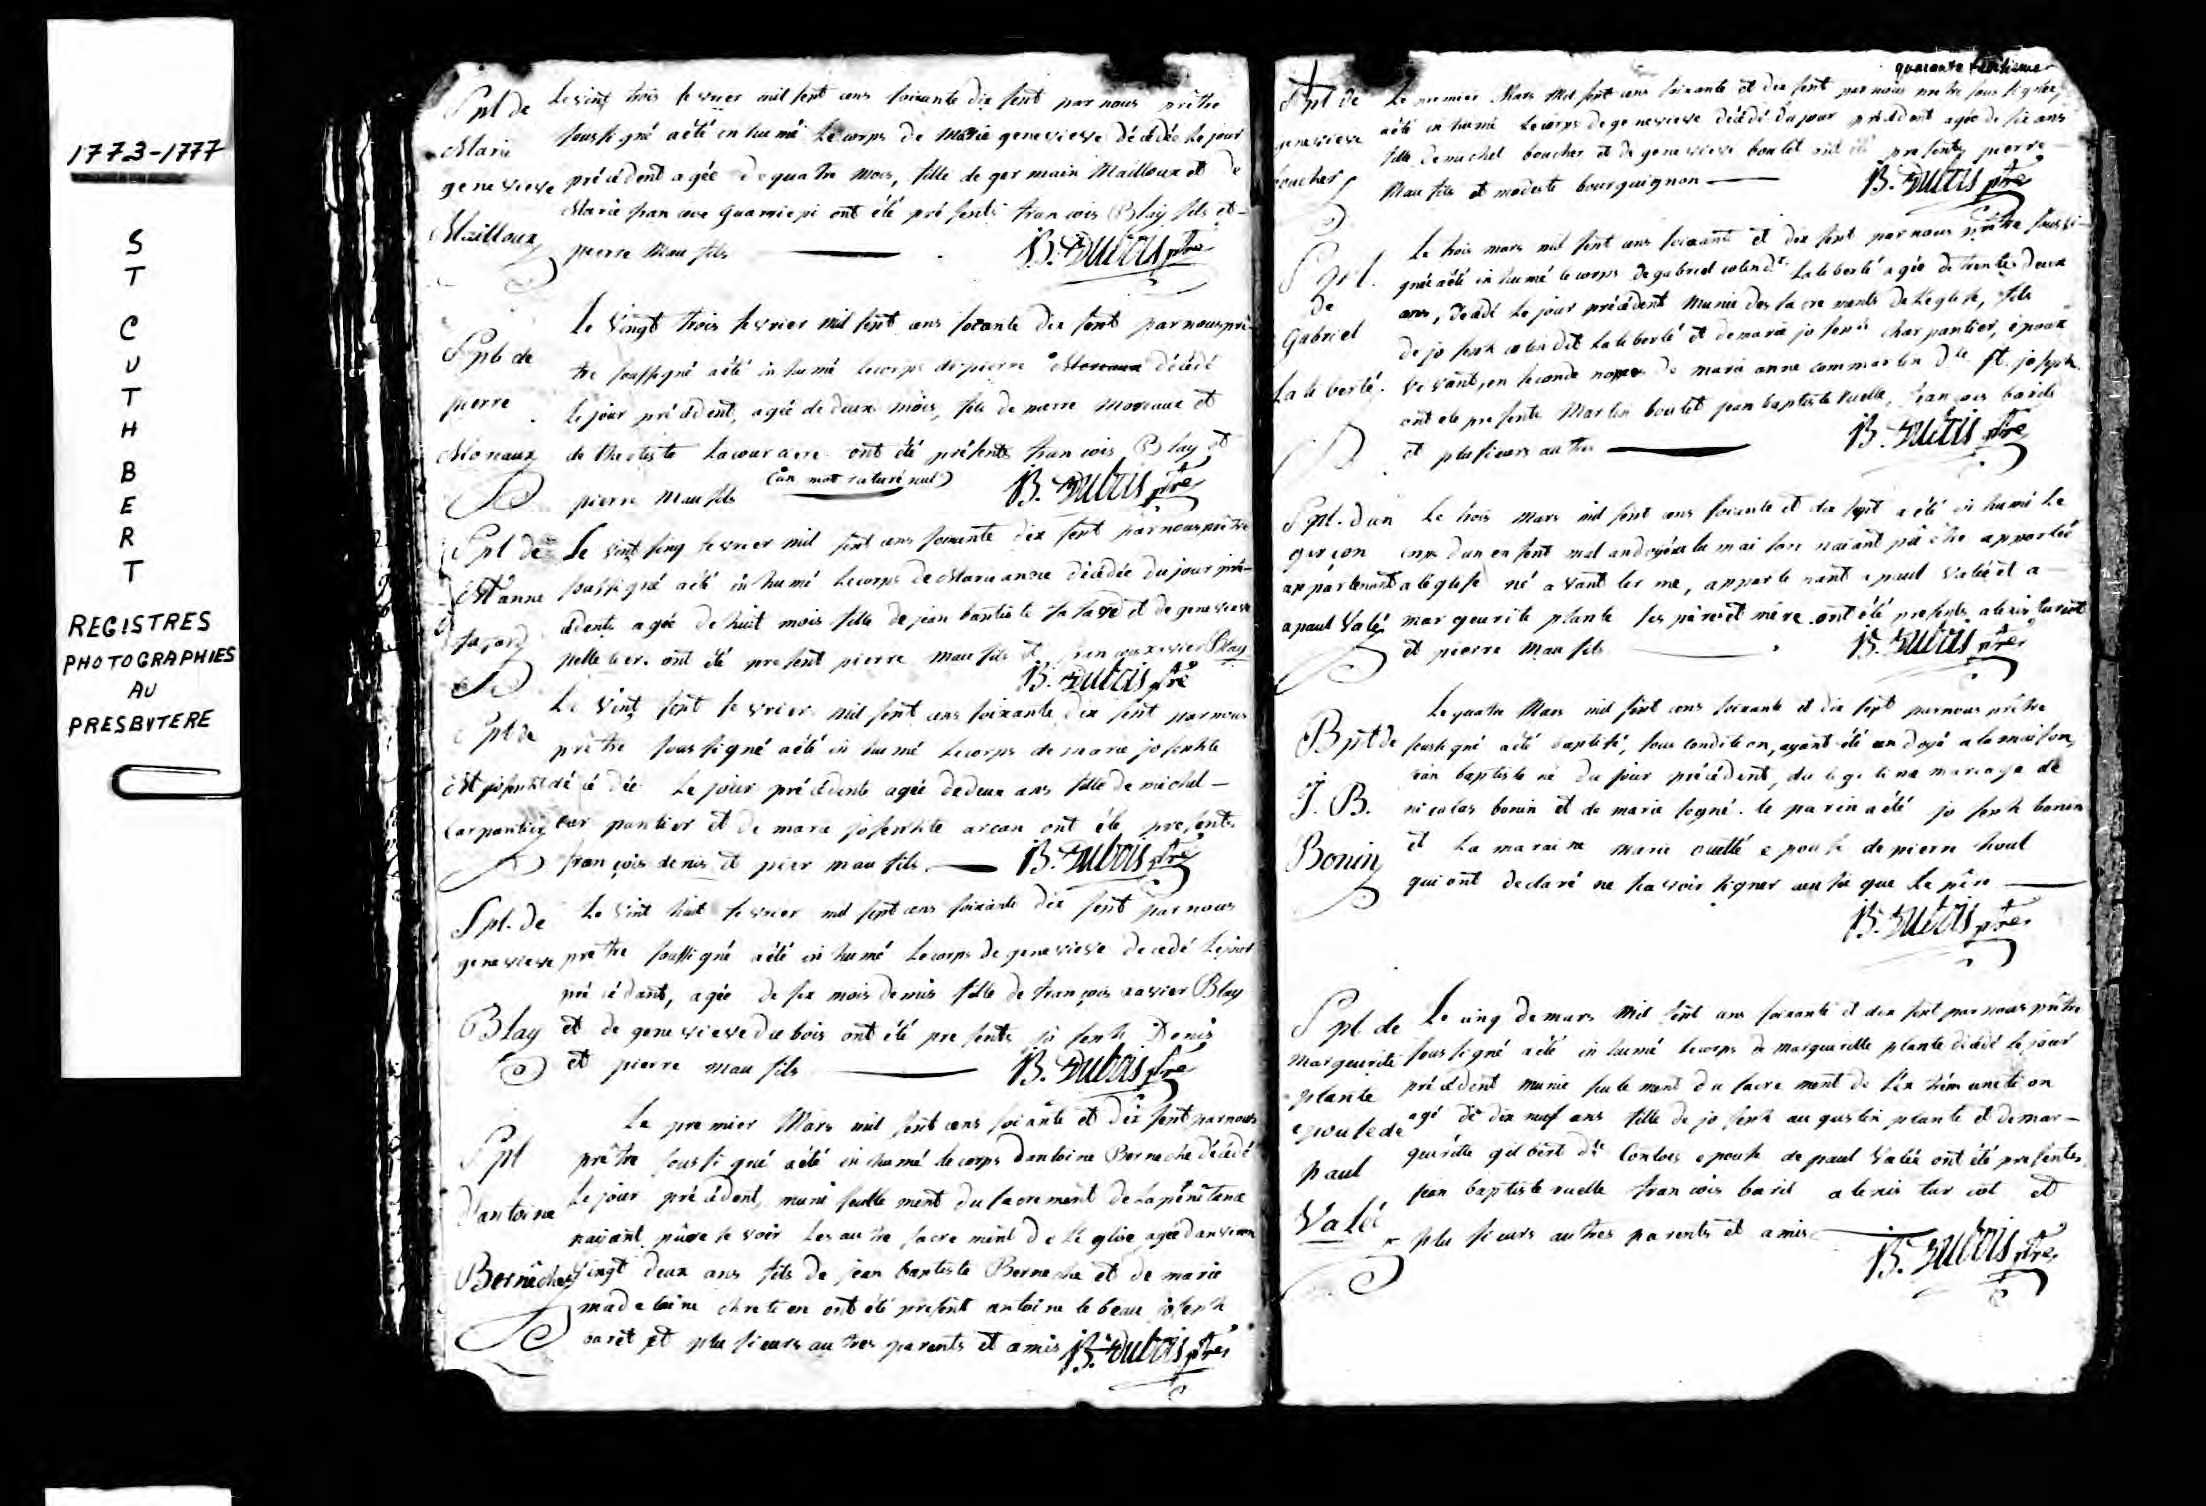 1773-1777
S
T
C
U
T
H
B
E
R
T
REGISTRES
PHOTOGRAPHIES
AU
PRESBYTERE
Spl de
Marie
genevieve
Mailloux
Le vint trois fevrier mil sept cens soixante dix sept par nous prêtre
soussigné a été inhumé le corps de Marie genevieve décédée le jour
précédent agée de quatre mois, fille de germain Mailloux et de
Marie francoise ont été présents francois Blay fils et
pierre Mau fils B. Dubois ptre
Spl de
pierre
Moreaux
Le vingt trois fevrier mil sept cens soixante dix sept par nous prê-
tre soussigné a été inhumé le corps de pierre Moreaux décédé
le jour précédent, agée de deux mois, fils de pierre Moreaux et
de Theotiste ont été présents francois Blay et
pierre Mau fils (un mot raturé nul) B. Dubois ptre
Spl de
M anne
Le vint sinq fevrier mil sept cens soixante dix sept par nous prêtre
soussigné a été inhumé le corps de Marie anne décédée du jour pré-
cédent agée de huit mois fille de jean baptiste et de genevieve
pelletier ont été present pierre mau fils et francois xavier Blay
B. Dubois ptre
Spl de
M josephte
Carpantier
Le vint sept fevrier mil sept cens soixante dix sept par nous
prêtre soussigné a été inhumé le corps de marie josephte
décédée le jour précédente agée de deux ans fille de michel
Carpantier et de marie josephte arcan ont été presents
françois denis et pier mau fils B. Dubois ptre
Spl. de
genevieve
Blay
Le vint huit fevrier mil sept cens soixante dix sept par nous
prêtre soussigné a été inhumé le corps de genevieve decedé le jour
précédant, agée de six mois demis fille de françois xavier Blay
et de genevieve dubois ont été presents joseph Denis
et pierre mau fils B. Dubois ptre
Spl
d'antoine
Berneche
Le premier Mars mil sept cens soixante et dix sept par nous
prêtre soussigné a été inhumé le corps dantoine Berneche décédé
le jour précédent, muni seullement du sacrement de la pénitence
naiant pû recevoir les autre sacrement de l'Eglise, agée d'environ
vingt deux ans fils de jean baptiste Berneche et de marie
madelaine chretien ont été présent antoine le beau joseph
baret et plusieurs autres parents et amis B. Dubois ptre
quarante
Spl de
genevieve
boucher
Le premier Mars Mil sept cens soixante et dix sept par nous pretre soussigné
a été inhumé le corps de genevieve décédé du jour précédent agée de six ans
fille de michel boucher et de genevieve boulet ont été presents pierre
Mau fils et modeste bourguignon B. Dubois ptre
Spl.
de
Gabriel
Laleberté.
Le trois mars mil sept cens soixante et dix sept par nous prêtre soussi-
gné a été inhumé le corps de gabriel colin dt Laleberté agée de trente deux
ans, décédé le jour précédent Munie des sacrements de l'eglise, fils
de joseph colin dit Laleberté et de marie joseph charpantier, époux
vivant, en seconde nopces de marie anne commartin dte st. joseph
ont été presente Martin boulet jean baptiste ruelle, françois baril
et plusieurs autres B. Dubois ptre
Spl. d'un
garçon
appartenant
a paul Valé
Le trois Mars mil sept cens soixante et dix sept a été inhumé le
corps d'un enfent mal andoyé a la maison naiant pû être apporteé
a l'eglise né avant terme, appartenant a paul Valée et a
marguerite plante ses père et mère. ont été presents alexis turcot
et pierre Mau fils B. Dubois ptre
Bpt de
J. B.
Bonin
Le quatre Mars mil sept cens soixante et dix sept par nous prêtre
soussigné a été baptisé, sous condition, ayant été andoyé a la maison,
jean baptiste né du jour précédent, du legitime mariage de
nicolas bonin et de marie le parin a été joseph bonin
et la maraine marie ouellé epouse de pierre houl
qui ont declaré ne scavoir signer ainsi que le père
B. Dubois ptre
Spl de
Marguerite
plante
epouse de
paul
Valée
Le cinq de mars Mil sept cens soixante et dix sept par nous prêtre
soussigné a été inhumé le corps de marguerite plante décédé le jour
précédent munie seulement du sacrement de l'extrême onction
agé de dix neuf ans fille de joseph augustin plante et de mar-
guerite gilbert dte Contois epouse de paul Valée ont été presentes
jean baptiste ruelle francois baril alexis turcot et
plusieurs autres parents et amis
B. Dubois ptre